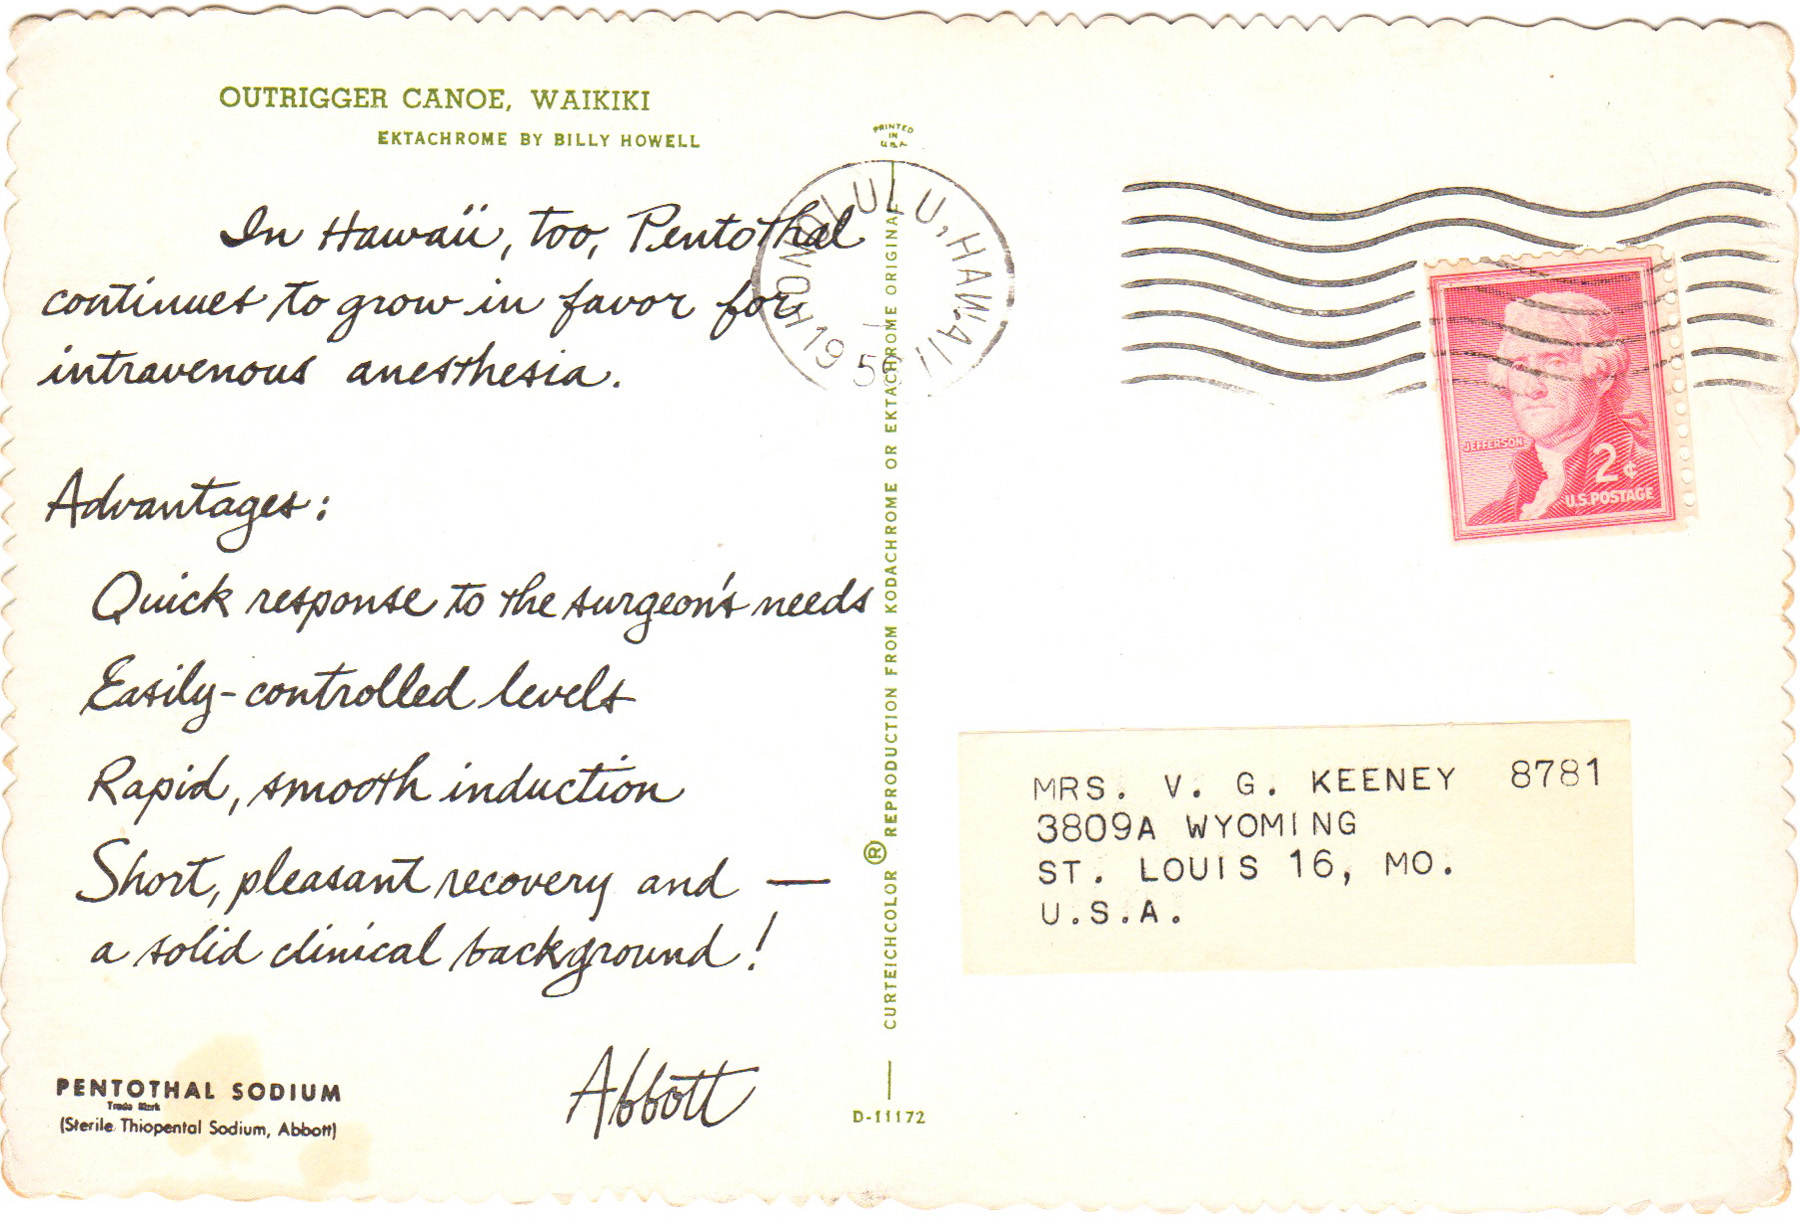 OUTRIGGER CANOE, WAIKIKI
EKTACHROME BY BILLY HOWELL
In Hawaii, too, Pentothal
continues to grow in favor for
intravenous anesthesia.
Advantages:
Quick response to the surgeon's needs
Easily-controlled levels
Rapid, smooth induction
Short, pleasant recovery and —
a solid clinical background!
Abbott
PENTOTHAL SODIUM
Trade Mark
(Sterile Thiopental Sodium, Abbott)
PRINTED
IN
U.S.A.
CURTEICHCOLOR ® REPRODUCTION FROM KODACHROME OR EKTACHROME ORIGINAL
D-11172
HONOLULU, HAWAII
JEFFERSON
2¢
U.S. POSTAGE
MRS. V. G. KEENEY 8781
3809A WYOMING
ST. LOUIS 16, MO.
U.S.A.